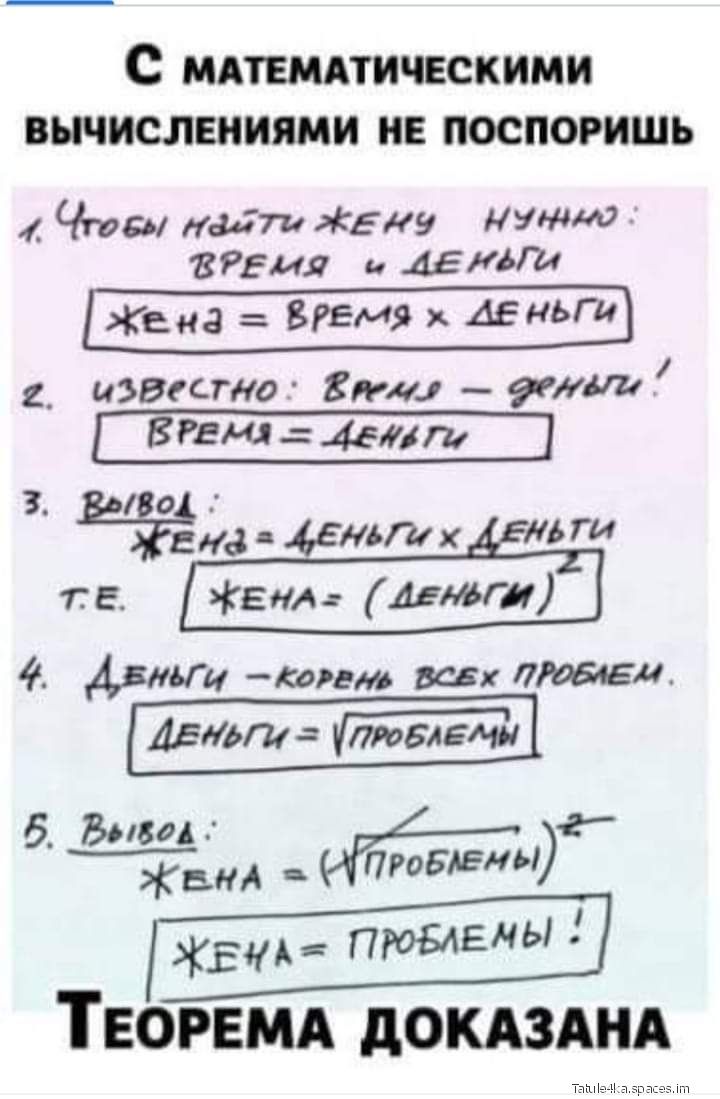 С МАТЕМАТИЧЕСКИМИ
ВЫЧИСЛЕНИЯМИ НЕ ПОСПОРИШЬ
1. Чтобы найти ЖЕНУ НУЖНО:
ВРЕМЯ и ДЕНЬГИ
ЖЕНА = ВРЕМЯ х ДЕНЬГИ
2. ИЗВЕСТНО: Время – деньги!
ВРЕМЯ = ДЕНЬГИ
3. ВЫВОД:
ЖЕНА = ДЕНЬГИ х ДЕНЬГИ
Т.Е. ЖЕНА = (ДЕНЬГИ)²
4. ДЕНЬГИ – КОРЕНЬ ВСЕХ ПРОБЛЕМ.
ДЕНЬГИ = √ПРОБЛЕМЫ
5. ВЫВОД:
ЖЕНА = (√ПРОБЛЕМЫ)²
ЖЕНА = ПРОБЛЕМЫ!
ТЕОРЕМА ДОКАЗАНА
Tatule4ka.spaces.im